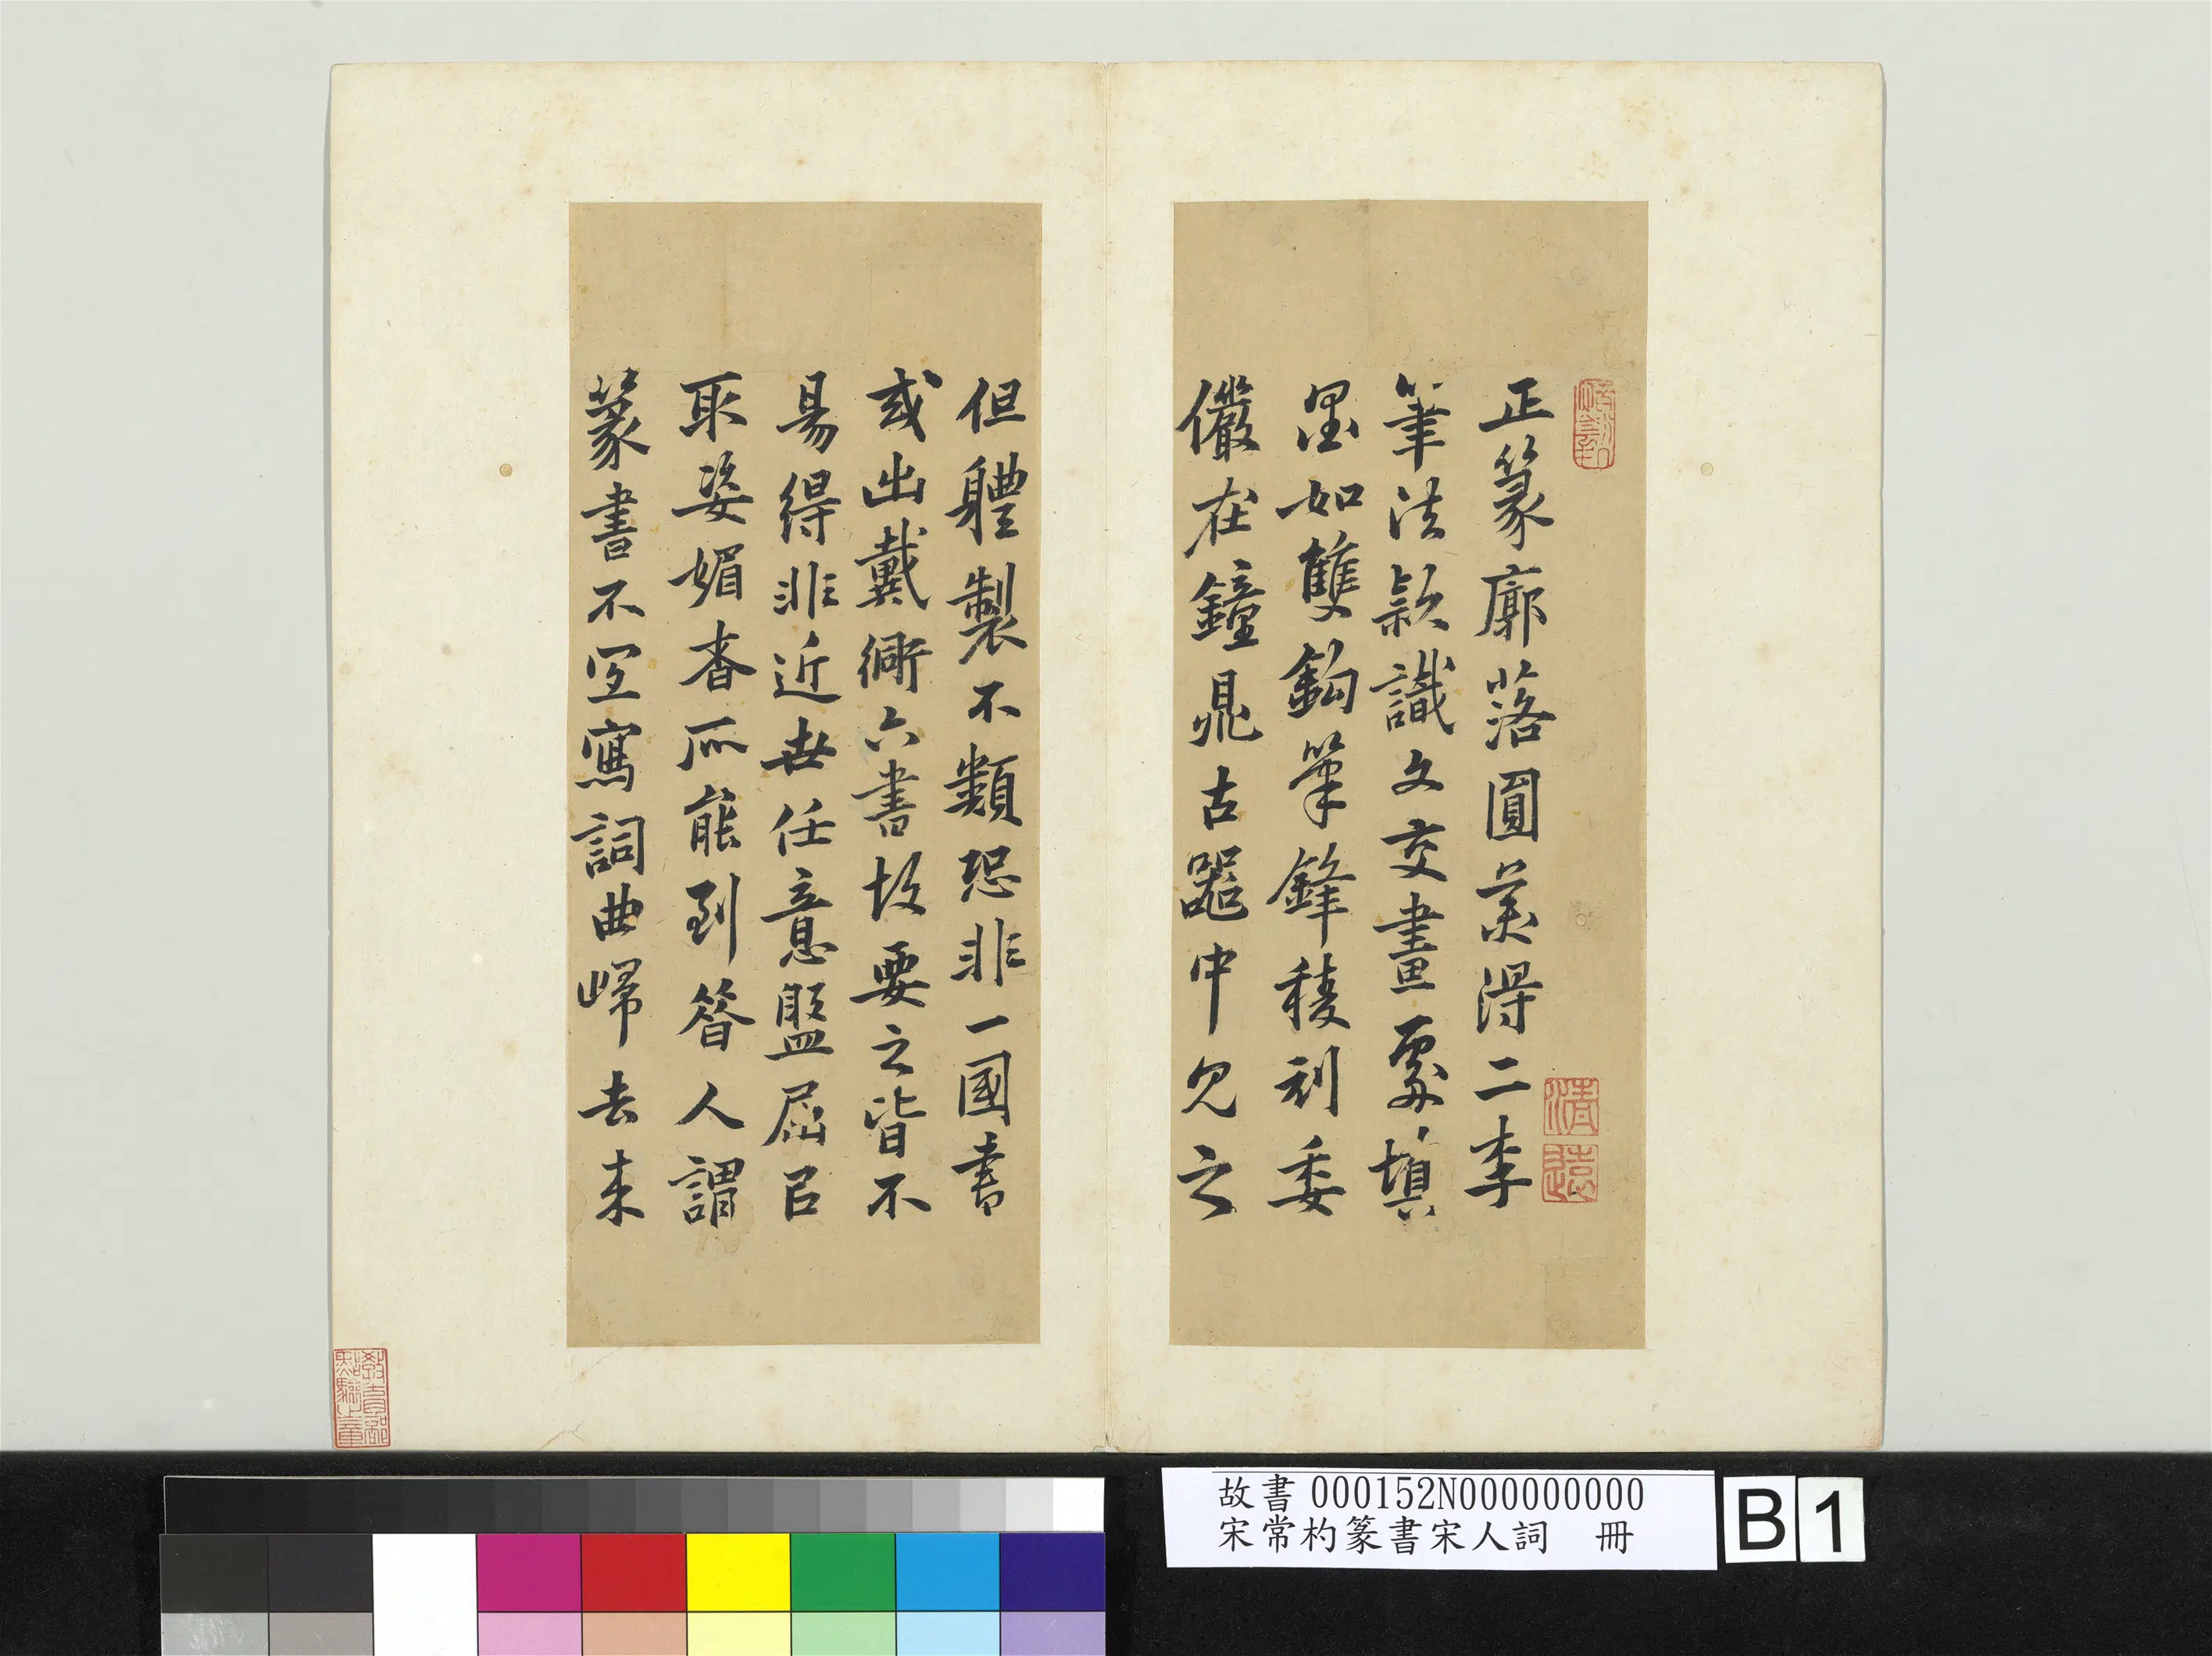 正篆廓落圓美得二李
筆法款識文交畫處填
墨如雙鈎筆鋒稜利委
儼在鐘鼎古器中見之
但軆製不類恐非一國書
或出戴衕六書故要之皆不
易得非近世任意盤屈㠯
取姿媚者所能到昝人謂
篆書不宜寫詞曲歸去来
清
遠
教育部
點驗之章
故書000152N000000000
宋常杓篆書宋人詞 冊
B 1